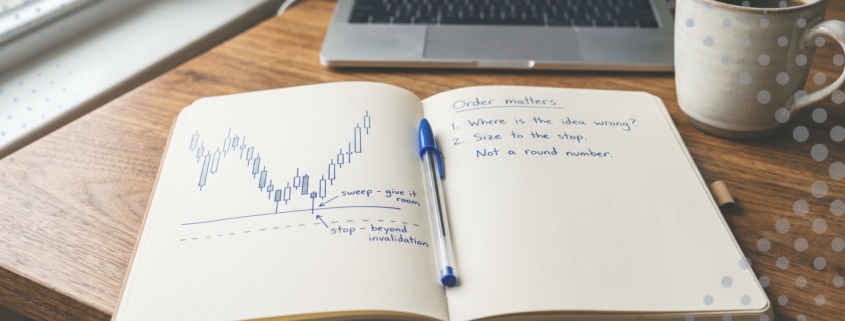 sweep - give it
room
stop - beyond
invalidation
Order matters
1. Where is the idea wrong?
2. Size to the stop.
Not a round number.